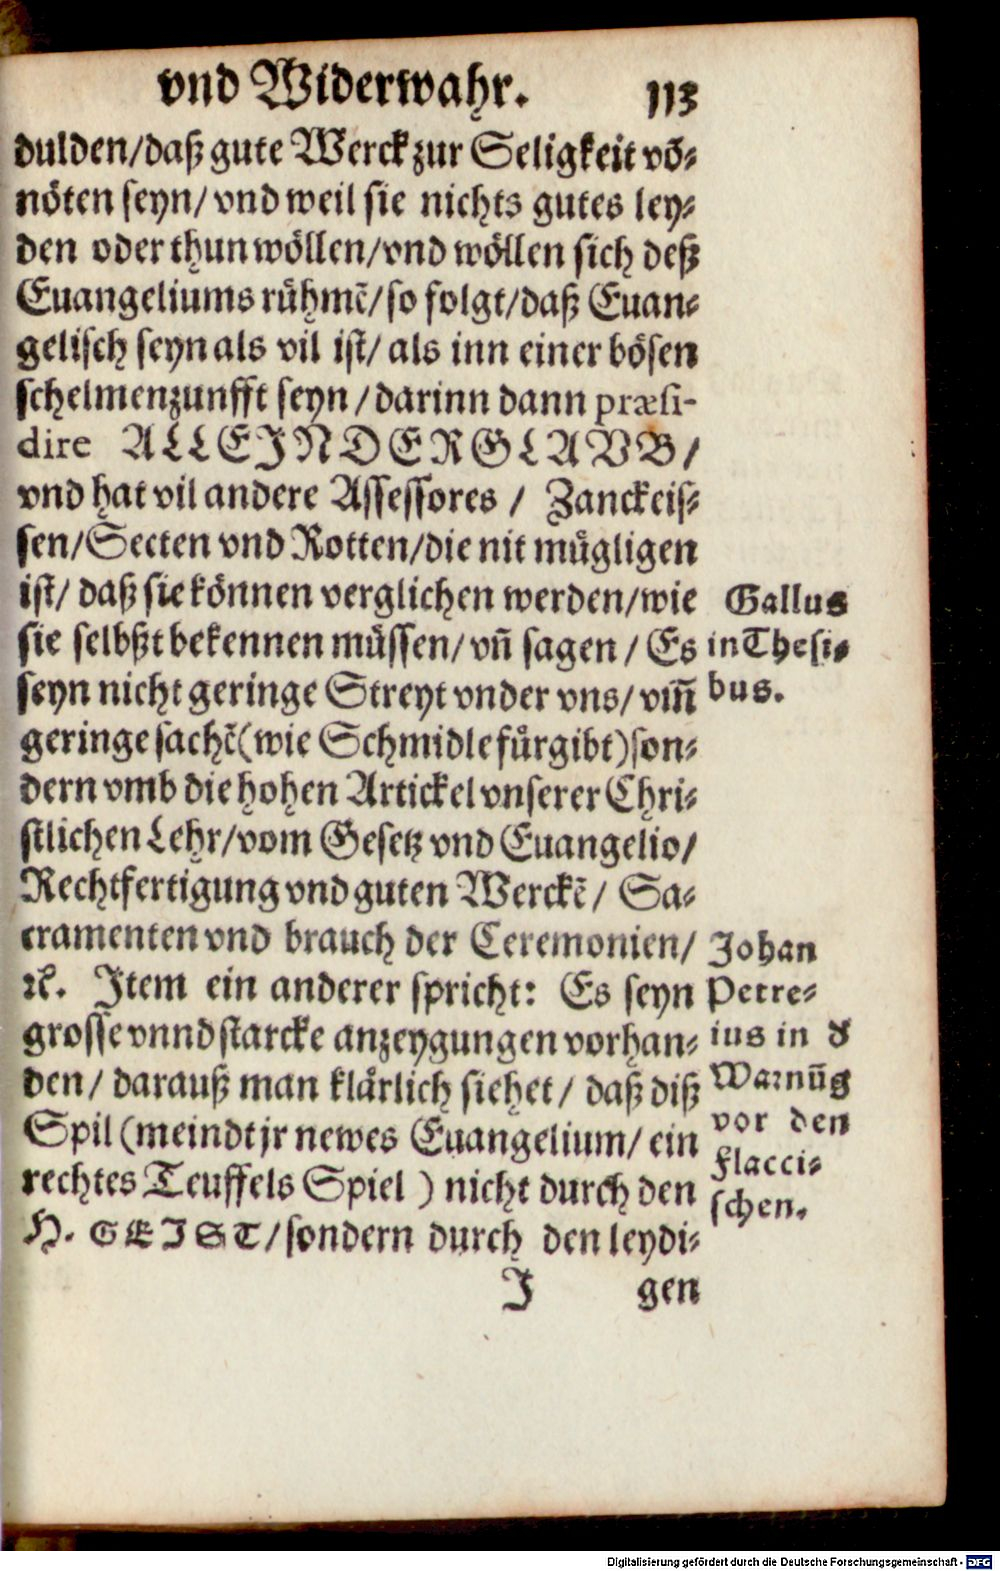 vnd Widerwahr. 113
dulden/daß gute Werck zur Seligkeit võ⸗
nöten seyn/ vnd weil sie nichts gutes ley⸗
den oder thun wöllen/vnd wöllen sich deß
Euangeliums rühmẽ/so folgt/daß Euan⸗
gelisch seyn als vil ist/ als inn einer bösen
schelmenzunfft seyn/darinn dann præsi-
dire ALLEIN DER GLAVB/
vnd hat vil andere Assessores/ Zanckeis⸗
sen/Secten vnd Rotten/die nit mügligen
ist/ daß sie können verglichen werden/wie
sie selbßt bekennen müssen/ vñ sagen/ Es
seyn nicht geringe Streyt vnder vns/ vm̃
geringe sachẽ(wie Schmidle fürgibt)son⸗
dern vmb die hohen Artickel vnserer Chri⸗
stlichen Lehr/vom Gesetz vnd Euangelio/
Rechtfertigung vnd guten Werckẽ/ Sa⸗
cramenten vnd brauch der Ceremonien/
ꝛc. Item ein anderer spricht: Es seyn
grosse vnnd starcke anzeygungen vorhan⸗
den/ darauß man klärlich siehet/ daß diß
Spil (meindt jr newes Euangelium/ ein
rechtes Teuffels Spiel) nicht durch den
H. GEIST/sondern durch den leydi⸗
J gen
Gallus
in Thesi⸗
bus.
Johan
Petre⸗
ius in d̕
Warnũg
vor den
Flacci⸗
schen.
Digitalisierung gefördert durch die Deutsche Forschungsgemeinschaft - DFG